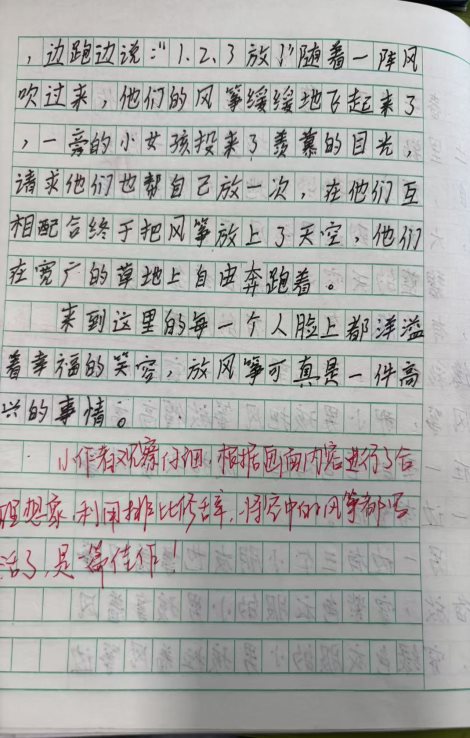 ，边跑边说：“1.2.3放！”随着一阵风
吹过来，他们的风筝缓缓地飞起来了
，一旁的小女孩投来了羡慕的目光，
请求他们也帮自己放一次，在他们互
相配合终于把风筝放上了天空，他们
在宽广的草地上自由奔跑着。
来到这里的每一个人脸上都洋溢
着幸福的笑容，放风筝可真是一件高
兴的事情。
小作者观察仔细，根据画面内容进行了合
理想象，利用排比修辞，将空中的风筝都写
活了，是篇佳作！